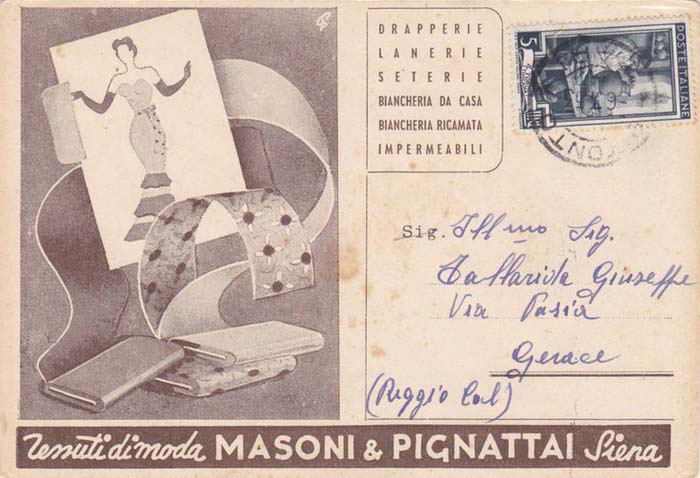 DRAPPERIE
LANERIE
SETERIE
BIANCHERIA DA CASA
BIANCHERIA RICAMATA
IMPERMEABILI
5
POSTE ITALIANE
Sig. Ill mo Sig.
Tallarida Giuseppe
Via
Gerace
(Reggio Cal)
Tessuti di moda MASONI & PIGNATTAI Siena